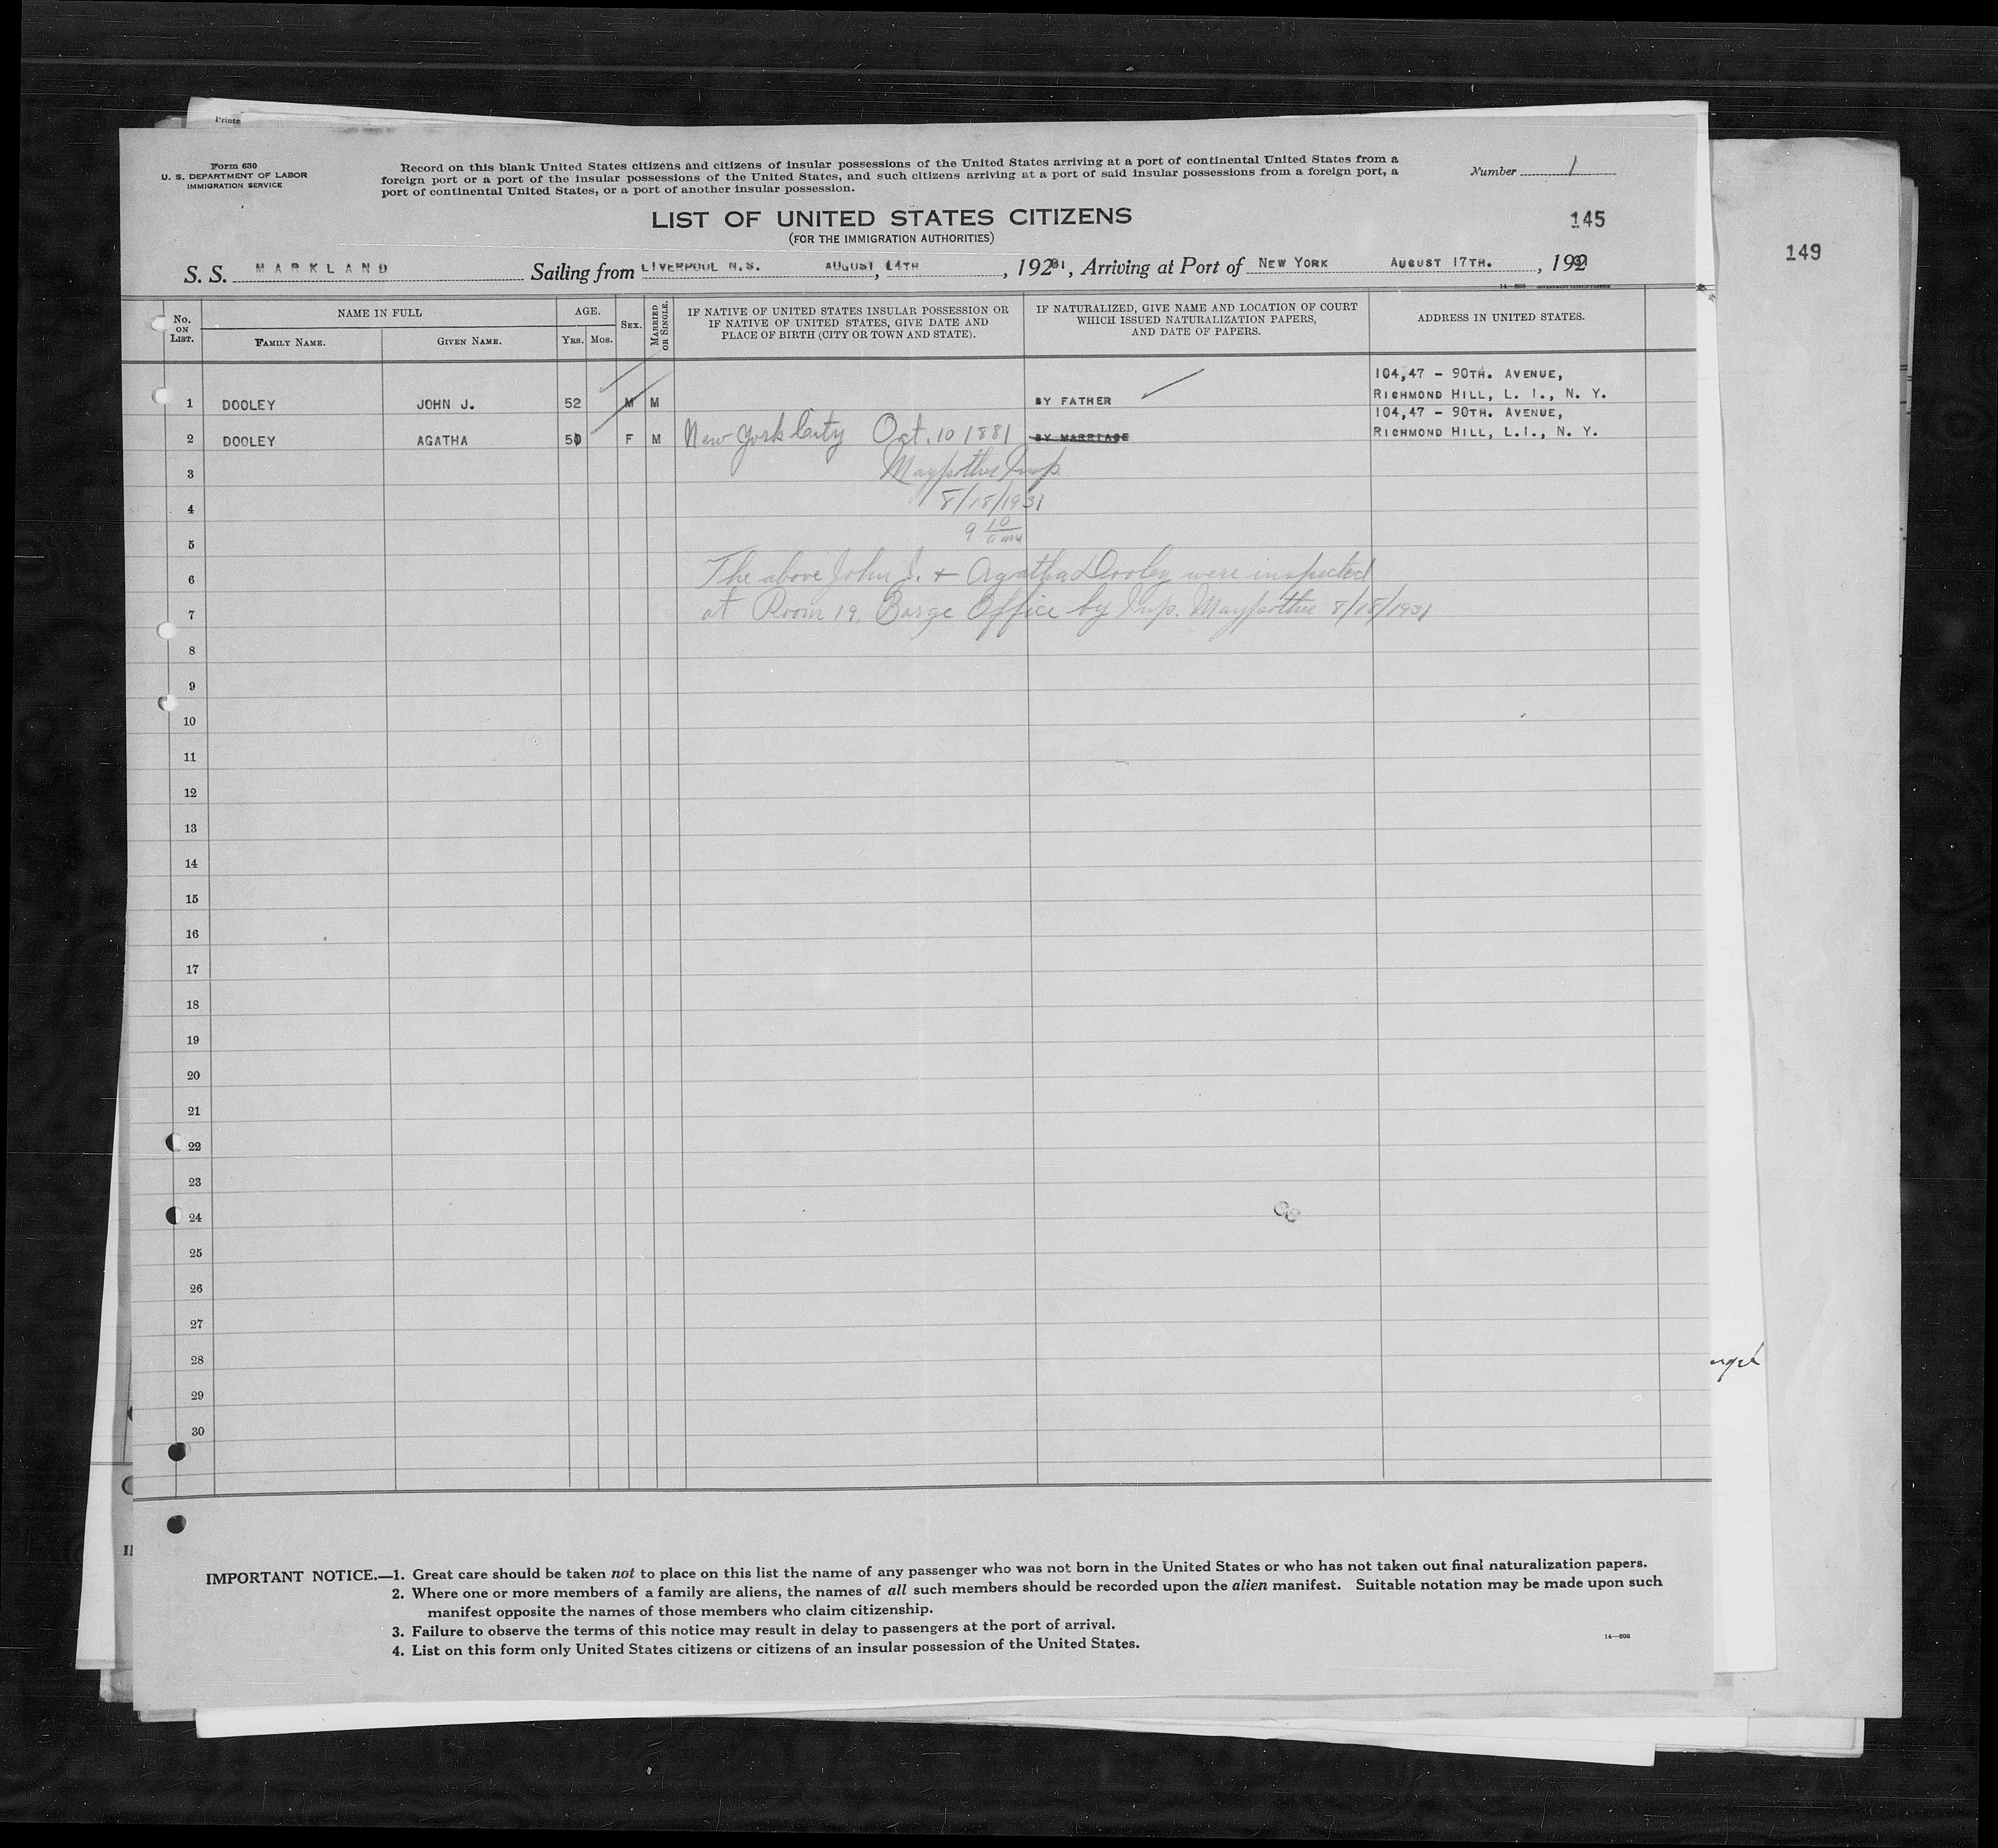 Printe
Form 630
U. S. DEPARTMENT OF LABOR
IMMIGRATION SERVICE
Record on this blank United States citizens and citizens of insular possessions of the United States arriving at a port of continental United States from a
foreign port or a port of the insular possessions of the United States, and such citizens arriving at a port of said insular possessions from a foreign port, a
port of continental United States, or a port of another insular possession.
Number 1
LIST OF UNITED STATES CITIZENS
(FOR THE IMMIGRATION AUTHORITIES)
145
149
S. S. MARKLAND Sailing from LIVERPOOL N.S. AUGUST, 14TH, 19231, Arriving at Port of NEW YORK AUGUST 17TH., 192
No. ON LIST.
NAME IN FULL
FAMILY NAME. GIVEN NAME.
AGE.
YRS. MOS.
SEX.
MARRIED OR SINGLE.
IF NATIVE OF UNITED STATES INSULAR POSSESSION OR
IF NATIVE OF UNITED STATES, GIVE DATE AND
PLACE OF BIRTH (CITY OR TOWN AND STATE).
IF NATURALIZED, GIVE NAME AND LOCATION OF COURT
WHICH ISSUED NATURALIZATION PAPERS,
AND DATE OF PAPERS.
ADDRESS IN UNITED STATES.
104,47 - 90TH. AVENUE,
1 DOOLEY JOHN J. 52 M M BY FATHER RICHMOND HILL, L. I., N. Y.
104,47 - 90TH. AVENUE,
2 DOOLEY AGATHA 50 F M New York City Oct. 10 1881 BY MARRIAGE RICHMOND HILL, L.I., N. Y.
3 Insp.
4 8/18/1931
5 9 10 am
6 The above John J. + Agatha Dooley were inspected
7 at Room 19, Barge Office by Insp. 8/18/1931
8
9
10
11
12
13
14
15
16
17
18
19
20
21
22
23
24
25
26
27
28
29
30
IMPORTANT NOTICE.—1. Great care should be taken not to place on this list the name of any passenger who was not born in the United States or who has not taken out final naturalization papers.
2. Where one or more members of a family are aliens, the names of all such members should be recorded upon the alien manifest. Suitable notation may be made upon such
manifest opposite the names of those members who claim citizenship.
3. Failure to observe the terms of this notice may result in delay to passengers at the port of arrival.
4. List on this form only United States citizens or citizens of an insular possession of the United States.